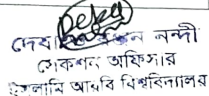 দেব রঞ্জন নন্দী
সেকশন অফিসার
ইসলামি আরবি বিশ্ববিদ্যালয়